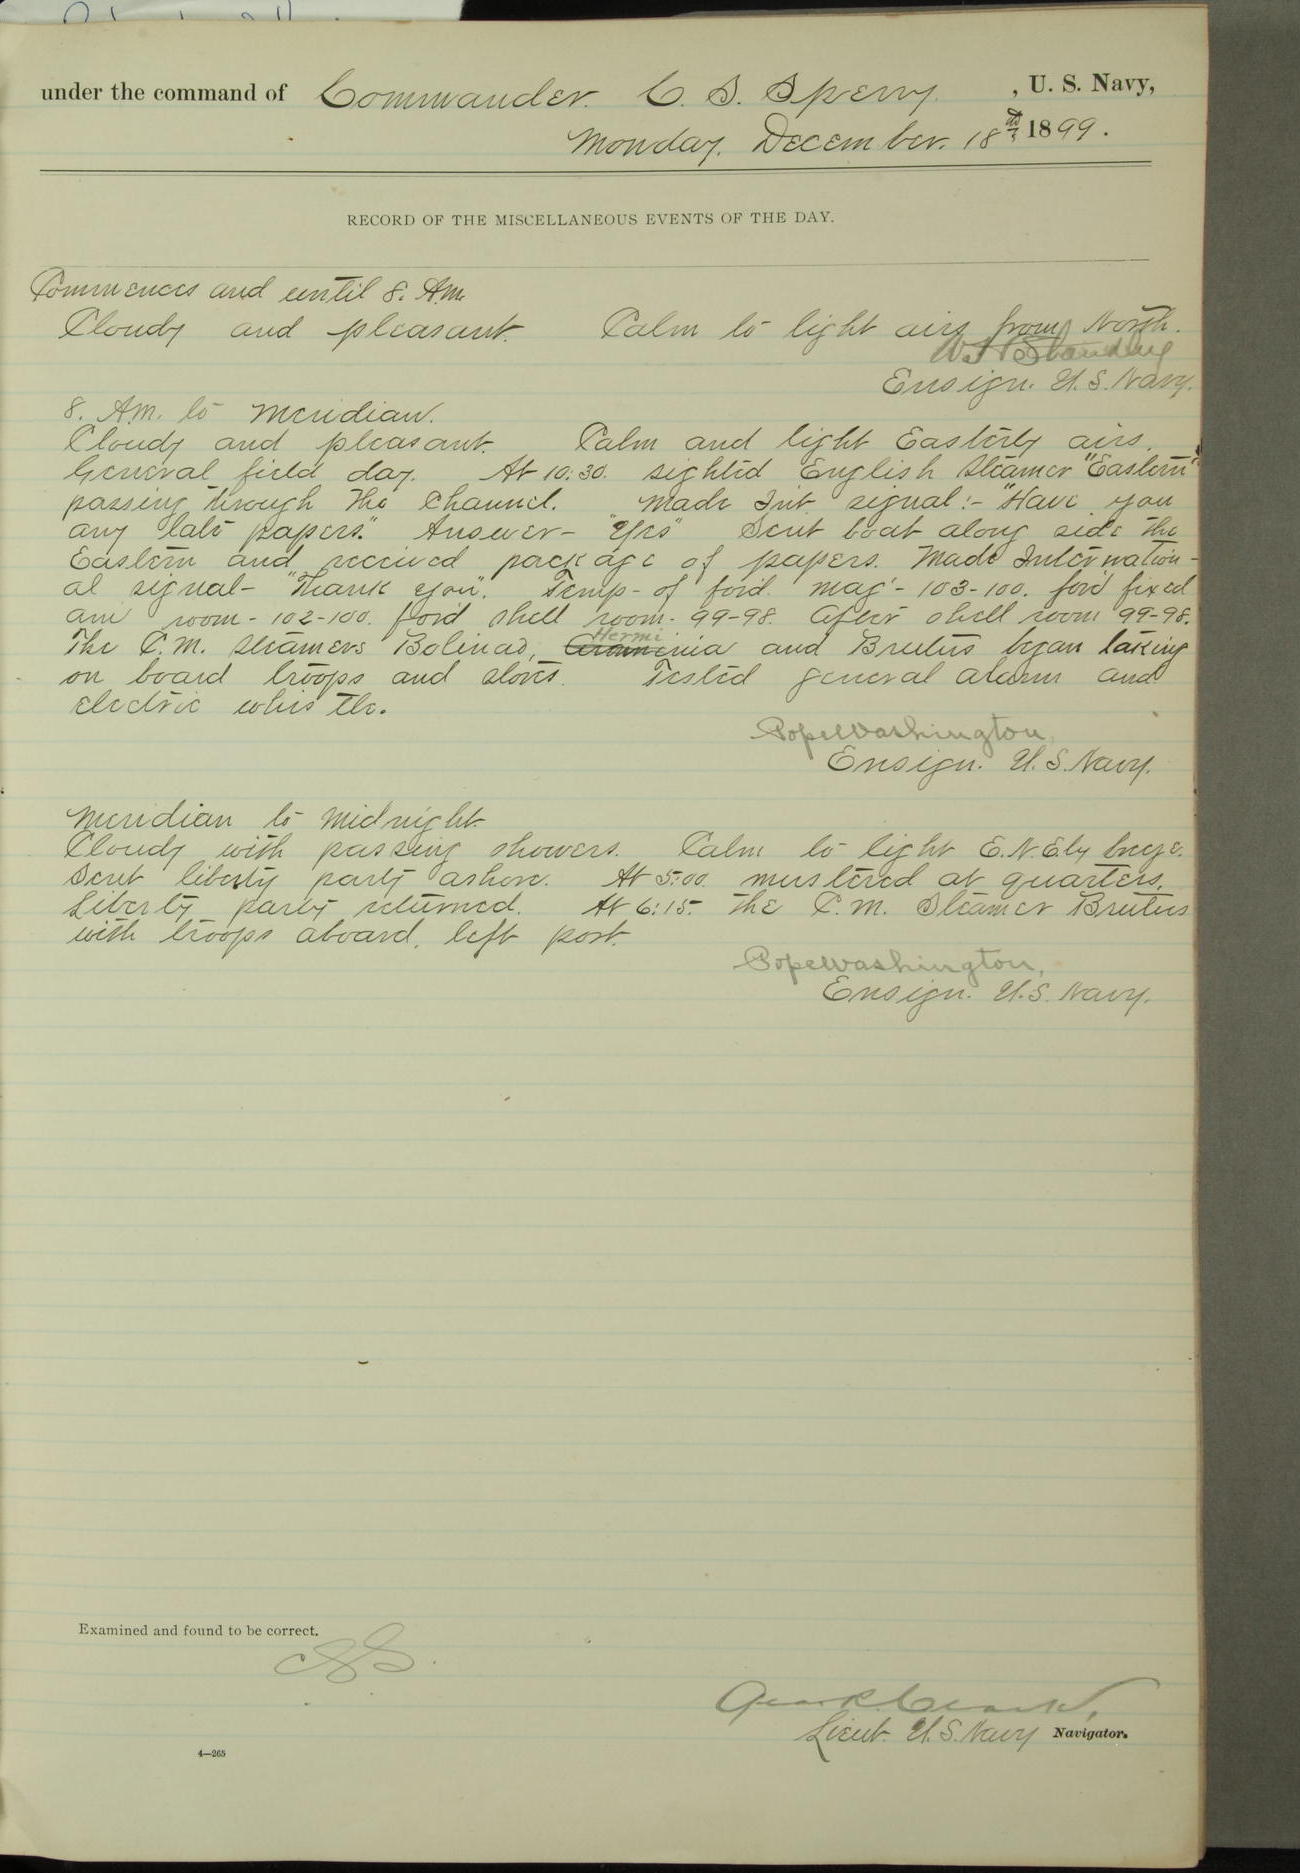 under the command of Commander. C. S. Sperry. , U. S. Navy,
Monday. December. 18th, 1899.
RECORD OF THE MISCELLANEOUS EVENTS OF THE DAY.
Commences and until 8. A.M.
Cloudy and pleasant. Calm to light airs from North.
W. H. Standley
Ensign. U. S. Navy.
8. A.M. to Meridian.
Cloudy and pleasant. Calm and light Easterly airs.
General field day. At 10:30. sighted English Steamer "Eastern"
passing through the Channel. Made Int. signal:- "Have you
any late papers". Answer- "Yes" Sent boat along side the
Eastern and received package of papers. Made Internation-
al signal- "Thank you". Temp- of for'd. mag'- 103-100. for'd fixed
am room- 102-100. for'd shell room- 99-98. After shell room 99-98.
The C.M. steamers Bolinao, Hermi inia and Brutus began taking
on board troops and stores. Tested general alarm and
electric whistle.
Pope Washington,
Ensign. U. S. Navy.
Meridian to Midnight.
Cloudy with passing showers. Calm to light E.N.E'ly breeze.
Sent liberty party ashore. At 5:00. mustered at quarters.
Liberty party returned. At 6:15. the C.M. Steamer Brutus
with troops aboard, left port.
Pope Washington,
Ensign. U. S. Navy.
Examined and found to be correct.
CSS.
Lieut. U. S. Navy Navigator.
4—265